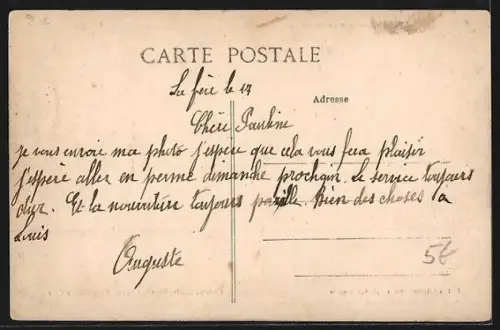 CARTE POSTALE
La fère le 14
Adresse
Chère Pauline
je vous envoie ma photo j'espère que cela vous fera plaisir
j'espère aller en perme dimanche prochain. Le service toujours
dur. Et la nourriture toujours pareille. Bien des choses a
Louis
Auguste
5€